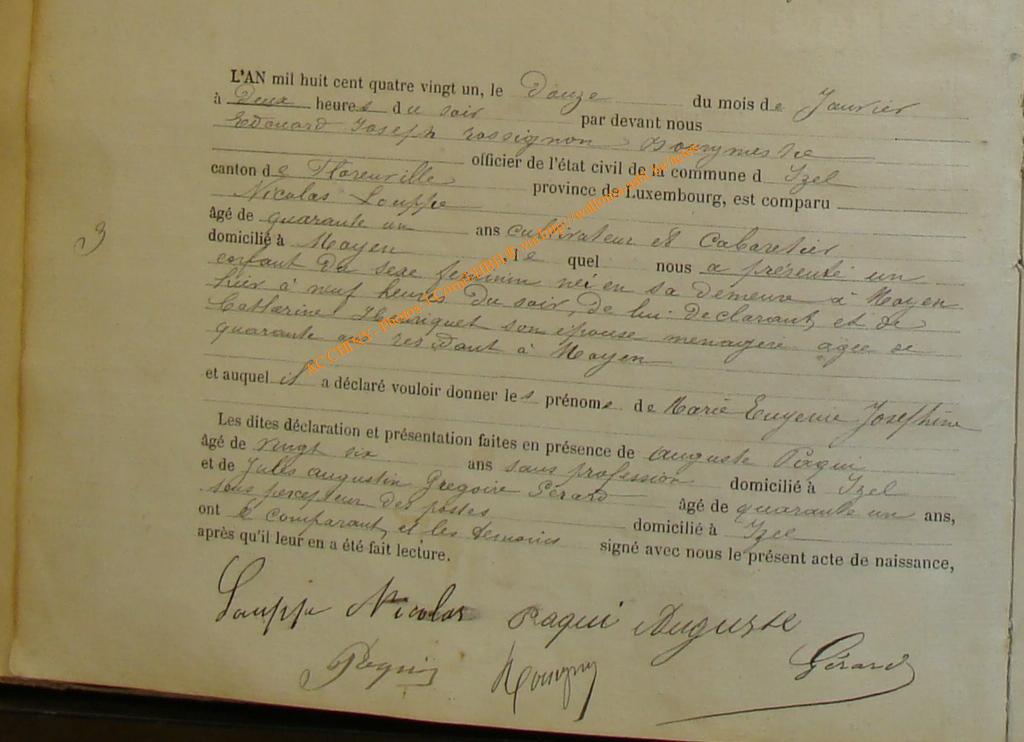 L'AN mil huit cent quatre vingt un, le Douze du mois de Janvier
à Deux heures du soir par devant nous
Edouard Joseph rossignon Bourgmestre
officier de l'état civil de la commune d Izel
canton de Florenville province de Luxembourg, est comparu
Nicolas Louppe
âgé de quarante un ans cultivateur et Cabaretier
domicilié à Moyen, le quel nous a présenté un
enfant du sexe feminin née en sa demeure à Moyen
hier à neuf heures du soir, de lui declarant, et de
Catharine Henriquet son epouse menagere agee de
quarante ans residant à Moyen
et auquel il a déclaré vouloir donner les prénoms de Marie Eugenie Josephine
3
Les dites déclaration et présentation faites en présence de Auguste Paqui
âgé de vingt six ans sans profession domicilié à Izel
et de Jules augustin Gregoire Gérard âgé de quarante un ans,
sous percepteur des postes domicilié à Izel
ont le comparant et les temoins signé avec nous le présent acte de naissance,
après qu'il leur en a été fait lecture.
Louppe Nicolas Paqui Auguste
Gérard